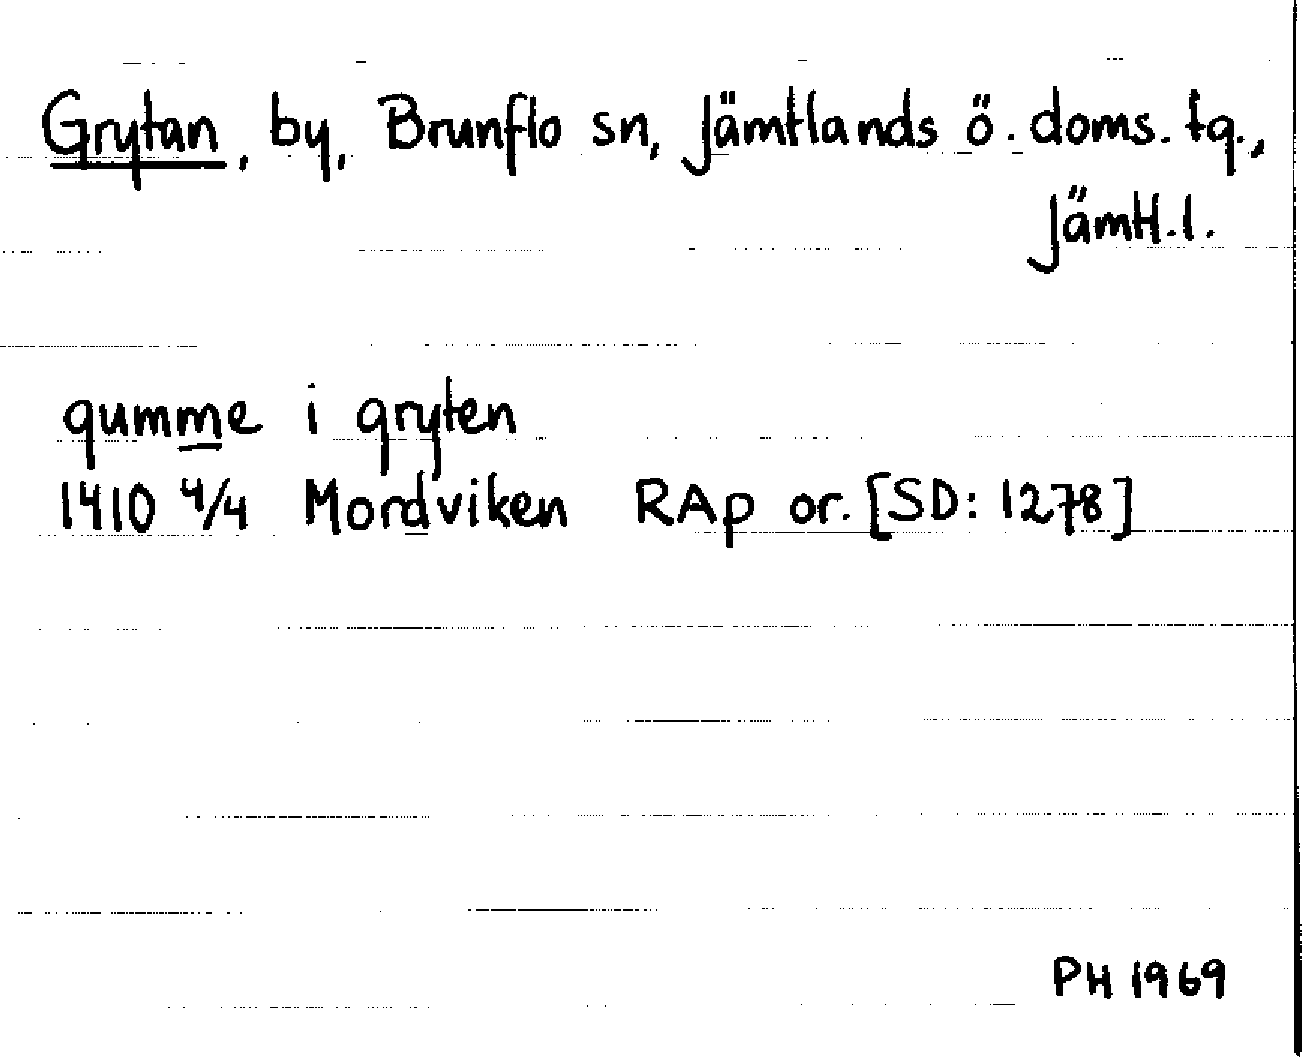 Grytan, by, Brunflo sn, Jämtlands ö. doms. tg.,
Jämtl. l.
gumme i gryten
1410 4/4 Mordviken RAp or. [SD: 1278]
PH 1969